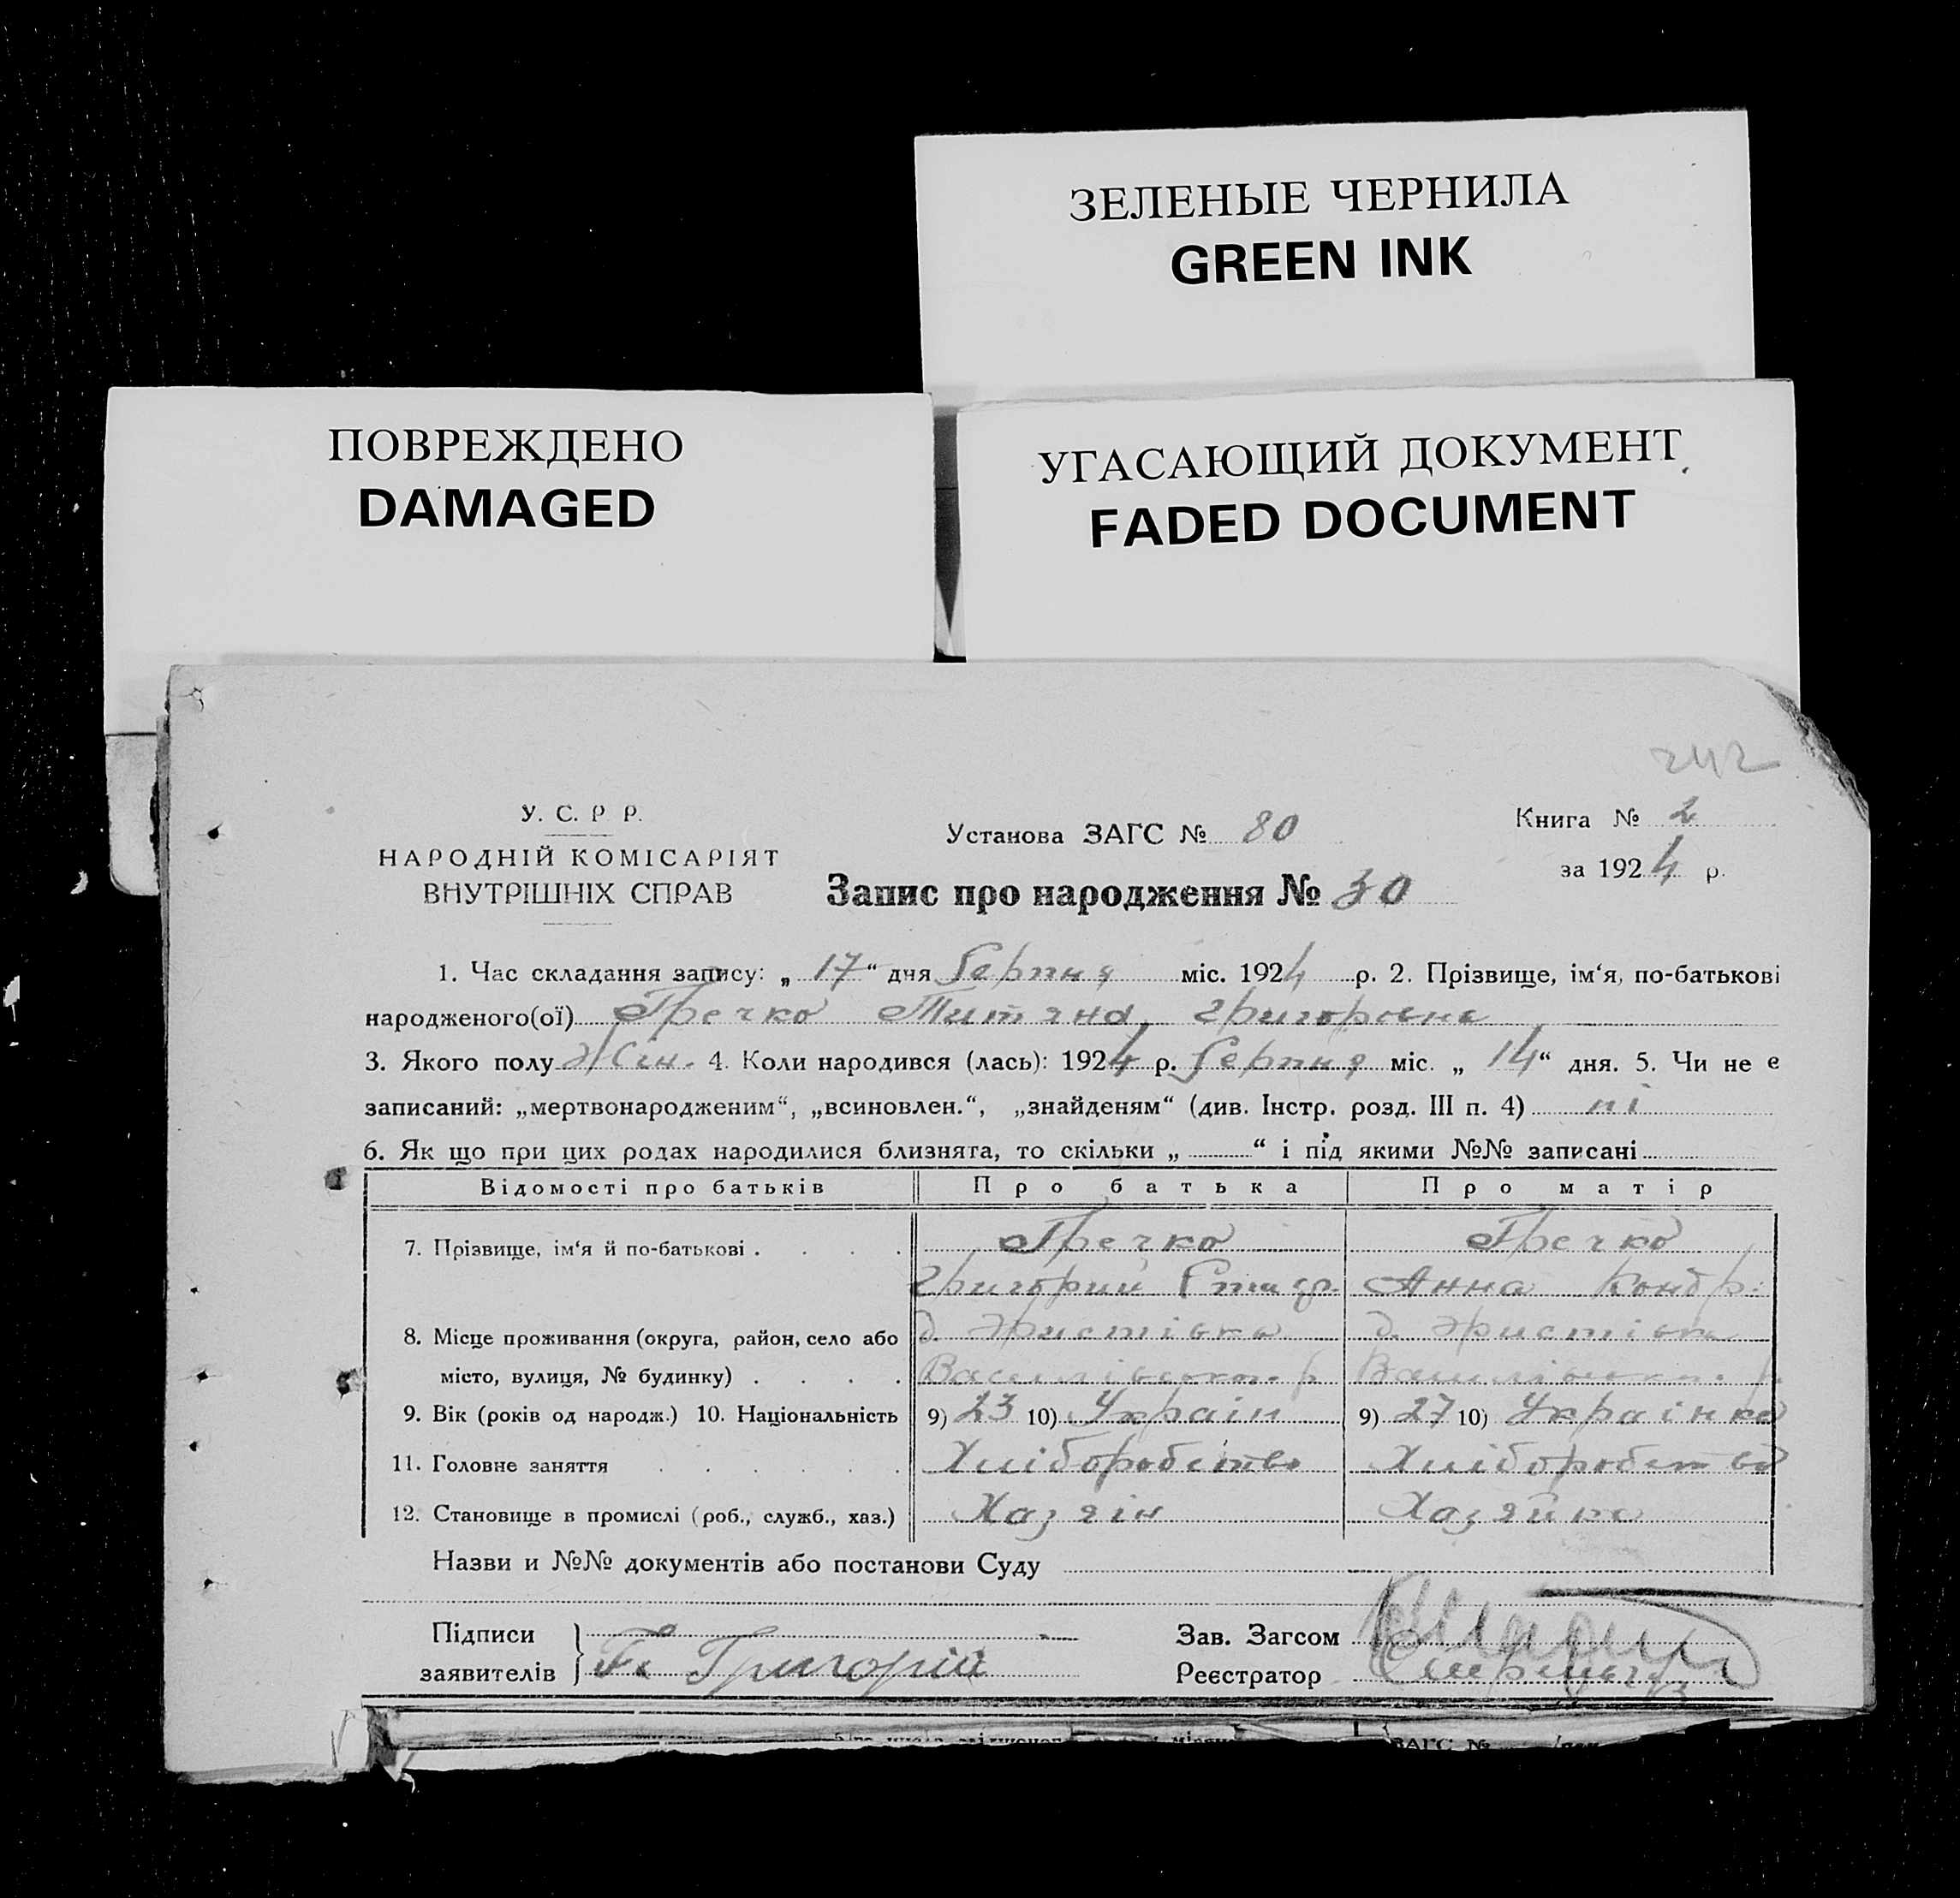 ЗЕЛЕНЫЕ ЧЕРНИЛА
GREEN INK
ПОВРЕЖДЕНО
DAMAGED
УГАСАЮЩИЙ ДОКУМЕНТ
FADED DOCUMENT
242
У. С. Р Р.
НАРОДНІЙ КОМІСАРІЯТ
ВНУТРІШНІХ СПРАВ
Установа ЗАГС № 80
Запис про народження № 30
Книга № 2
за 1924 р.
1. Час складання запису: „ 17 “ дня Серпня міс. 1924 р. 2. Прізвище, ім‘я, по-батькові
народженого(ої) Гречко Титяна Григоровна
3. Якого полу Жін. 4. Коли народився (лась): 1924 р. Серпня міс. „ 14 “ дня. 5. Чи не є
записаний: „мертвонародженим“, „всиновлен.“, „знайденям“ (див. Інстр. розд. III п. 4) ні
6. Як що при цих родах народилися близнята, то скільки „ “ і під якими №№ записані
Відомості про батьків Про батька Про матір
7. Прізвище, ім‘я й по-батькові Гречко Гречко
Григорий Анна Кондр.
8. Місце проживання (округа, район, село або д. Христівка д. Христівка
місто, вулиця, № будинку) Василівськ. р. Василівськ. р.
9. Вік (років од народж.) 10. Національність 9) 23 10) Украін 9) 27 10) Украінка
11. Головне заняття Хліборобство Хліборобство
12. Становище в промислі (роб., служб., хаз.) Хазяін Хазяйка
Назви и №№ документів або постанови Суду
Підписи
заявителів Г. Григорій
Зав. Загсом
Реєстратор
ЗАГС №